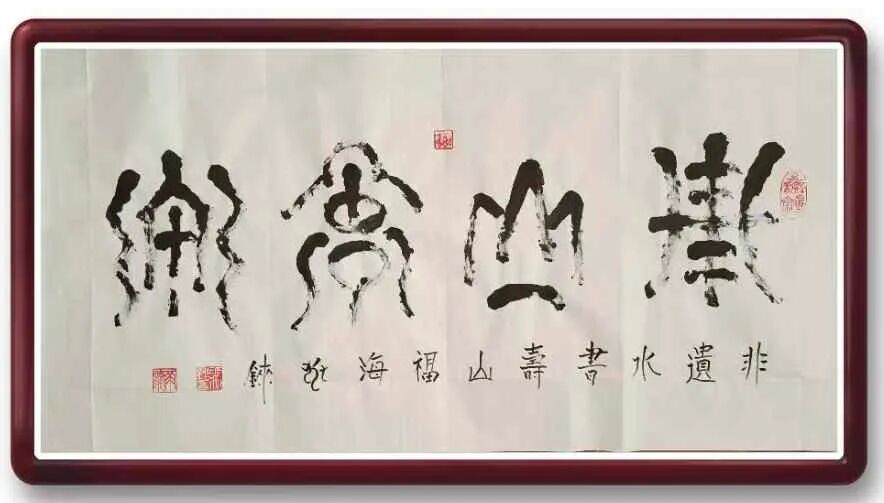 壽山福海
非遺水書壽山福海